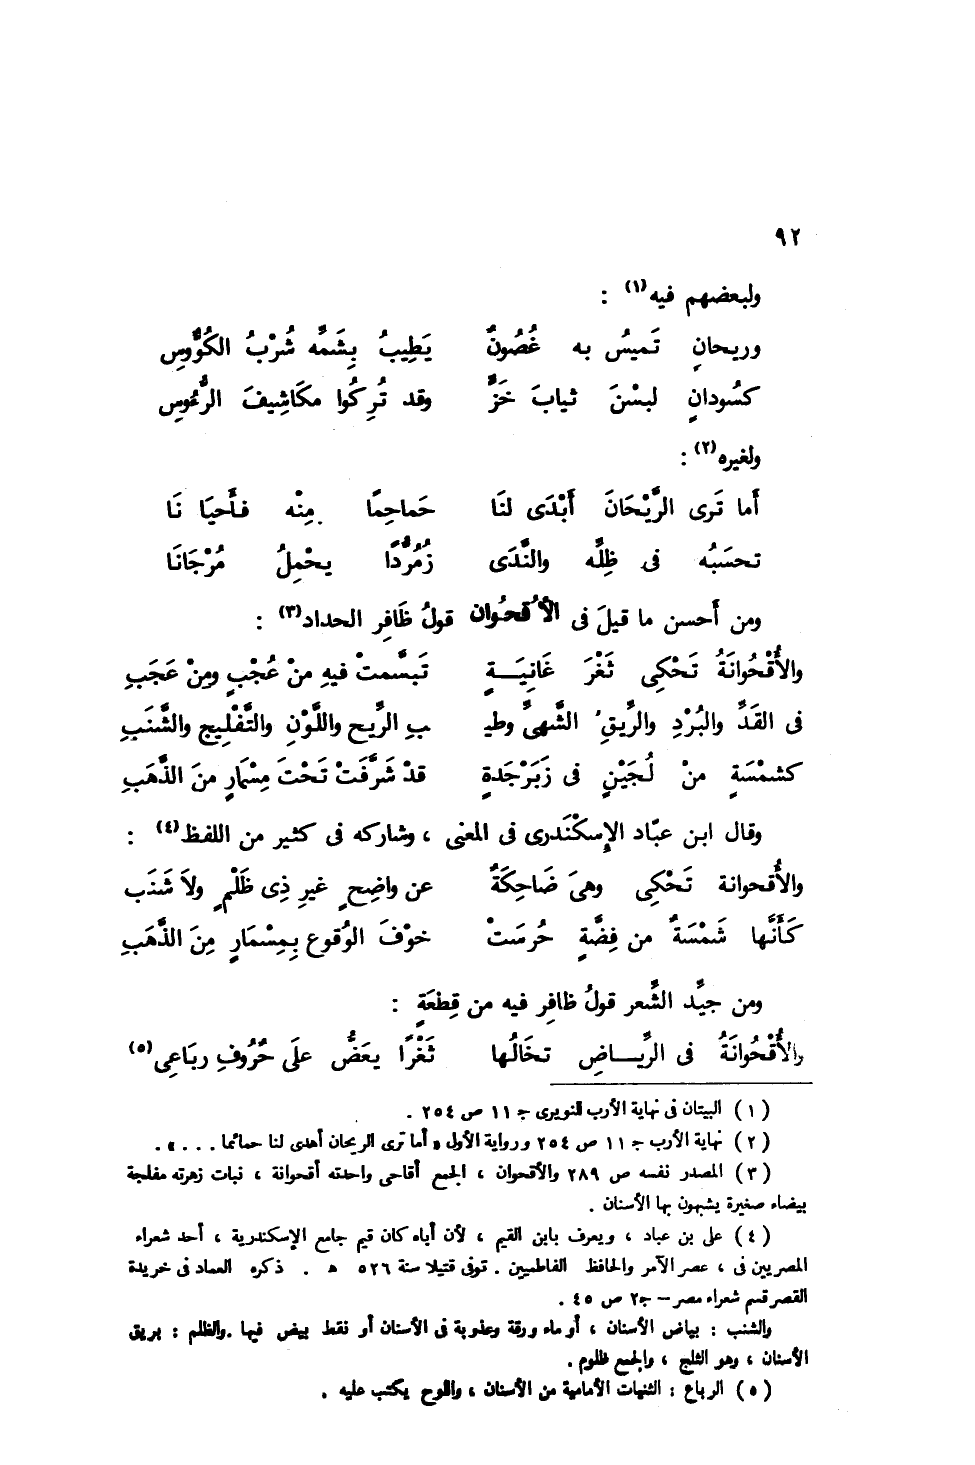 ٩٢
ولبعضهم فيه(١) :
وريحانٍ تَميسُ به غُصُونٌ يَطِيبُ بِشَمِّه شُرْبُ الكُؤُوسِ
كسُودانٍ لبسْنَ ثيابَ خَزٍّ وقد تُرِكُوا مكَاشِيفَ الرُّءُوسِ
ولغيره(٢) :
أما تَرى الرَّيْحَانَ أَبْدَى لنَا حَماحِمًا مِنْه فأَحيَا نَا
تحسَبُه فى ظِلِّه والنَّدَى زُمُرُّدًا يحْمِلُ مُرْجَانَا
ومن أَحسن ما قيلَ فى الأُقحُوان قولُ ظَافِر الحداد(٣) :
والأُقْحُوانَةُ تَحْكِى ثَغْرَ غَانِيَـــةٍ تَبسَّمتْ فيهِ منْ عُجْبٍ ومِنْ عَجَبِ
فى القَدِّ والبُرْدِ والرِّيقِ الشَّهىِّ وطيـ ـبِ الرِّيح واللَّوْنِ والتَّفْلِيجِ والشَّنَبِ
كشمْسَةٍ منْ لُجَيْنٍ فى زَبَرْجَدةٍ قدْ شَرَّفَتْ تَحْتَ مِسْمَارٍ منَ الذَّهَبِ
وقال ابن عبّاد الإسكَنْدَرى فى المعنى ، وشاركه فى كثير من اللفظ(٤) :
والأُقحوانة تَحْكِى وهىَ ضَاحِكَةٌ عن واضِحٍ غيرِ ذِى ظَلْمٍ ولاَ شَنَب
كَأَنَّها شَمْسَةٌ من فِضَّةٍ حُرسَتْ خوْفَ الوُقوع بِمِسْمَارٍ مِنَ الذَّهَبِ
ومن جيِّد الشِّعر قولُ ظافِر فيه من قِطعَةٍ :
والأُقْحُوانَةُ فى الرِّيَـــاضِ تخالُها ثَغْرًا يعَضُّ علَى حُرُوفِ ربَاعِى(٥)
(١) البيتان فى نهاية الأرب للنويرى جـ ١١ ص ٢٥٤ .
(٢) نهاية الأرب جـ ١١ ص ٢٥٤ ورواية الأول « أما ترى الريحان أهدى لنا حمائما . . . » .
(٣) المصدر نفسه ص ٢٨٩ والأقحوان ، الجمع أقاحى واحدته أقحوانة ، نبات زهرته مفلجة
بيضاء صغيرة يشبهون بها الأسنان .
(٤) على بن عباد ، ويعرف بابن القيم ، لأن أباه كان قيم جامع الإسكندرية ، أحد شعراء
المصريين فى ، عصر الآمر والحافظ الفاطميين . توفى قتيلا سنة ٥٢٦ هـ . ذكره العماد فى خريدة
القصر قسم شعراء مصر – جـ٢ ص ٤٥ .
والشنب : بياض الأسنان ، أو ماء ورقة وعذوبة فى الأسنان أو نقط بيض فيها .والظلم : بريق
الأسنان ، وهو الثلج ، والجمع ظلوم .
(٥) الرباع : الثنيات الأمامية من الأسنان ، واللوح يكتب عليه .